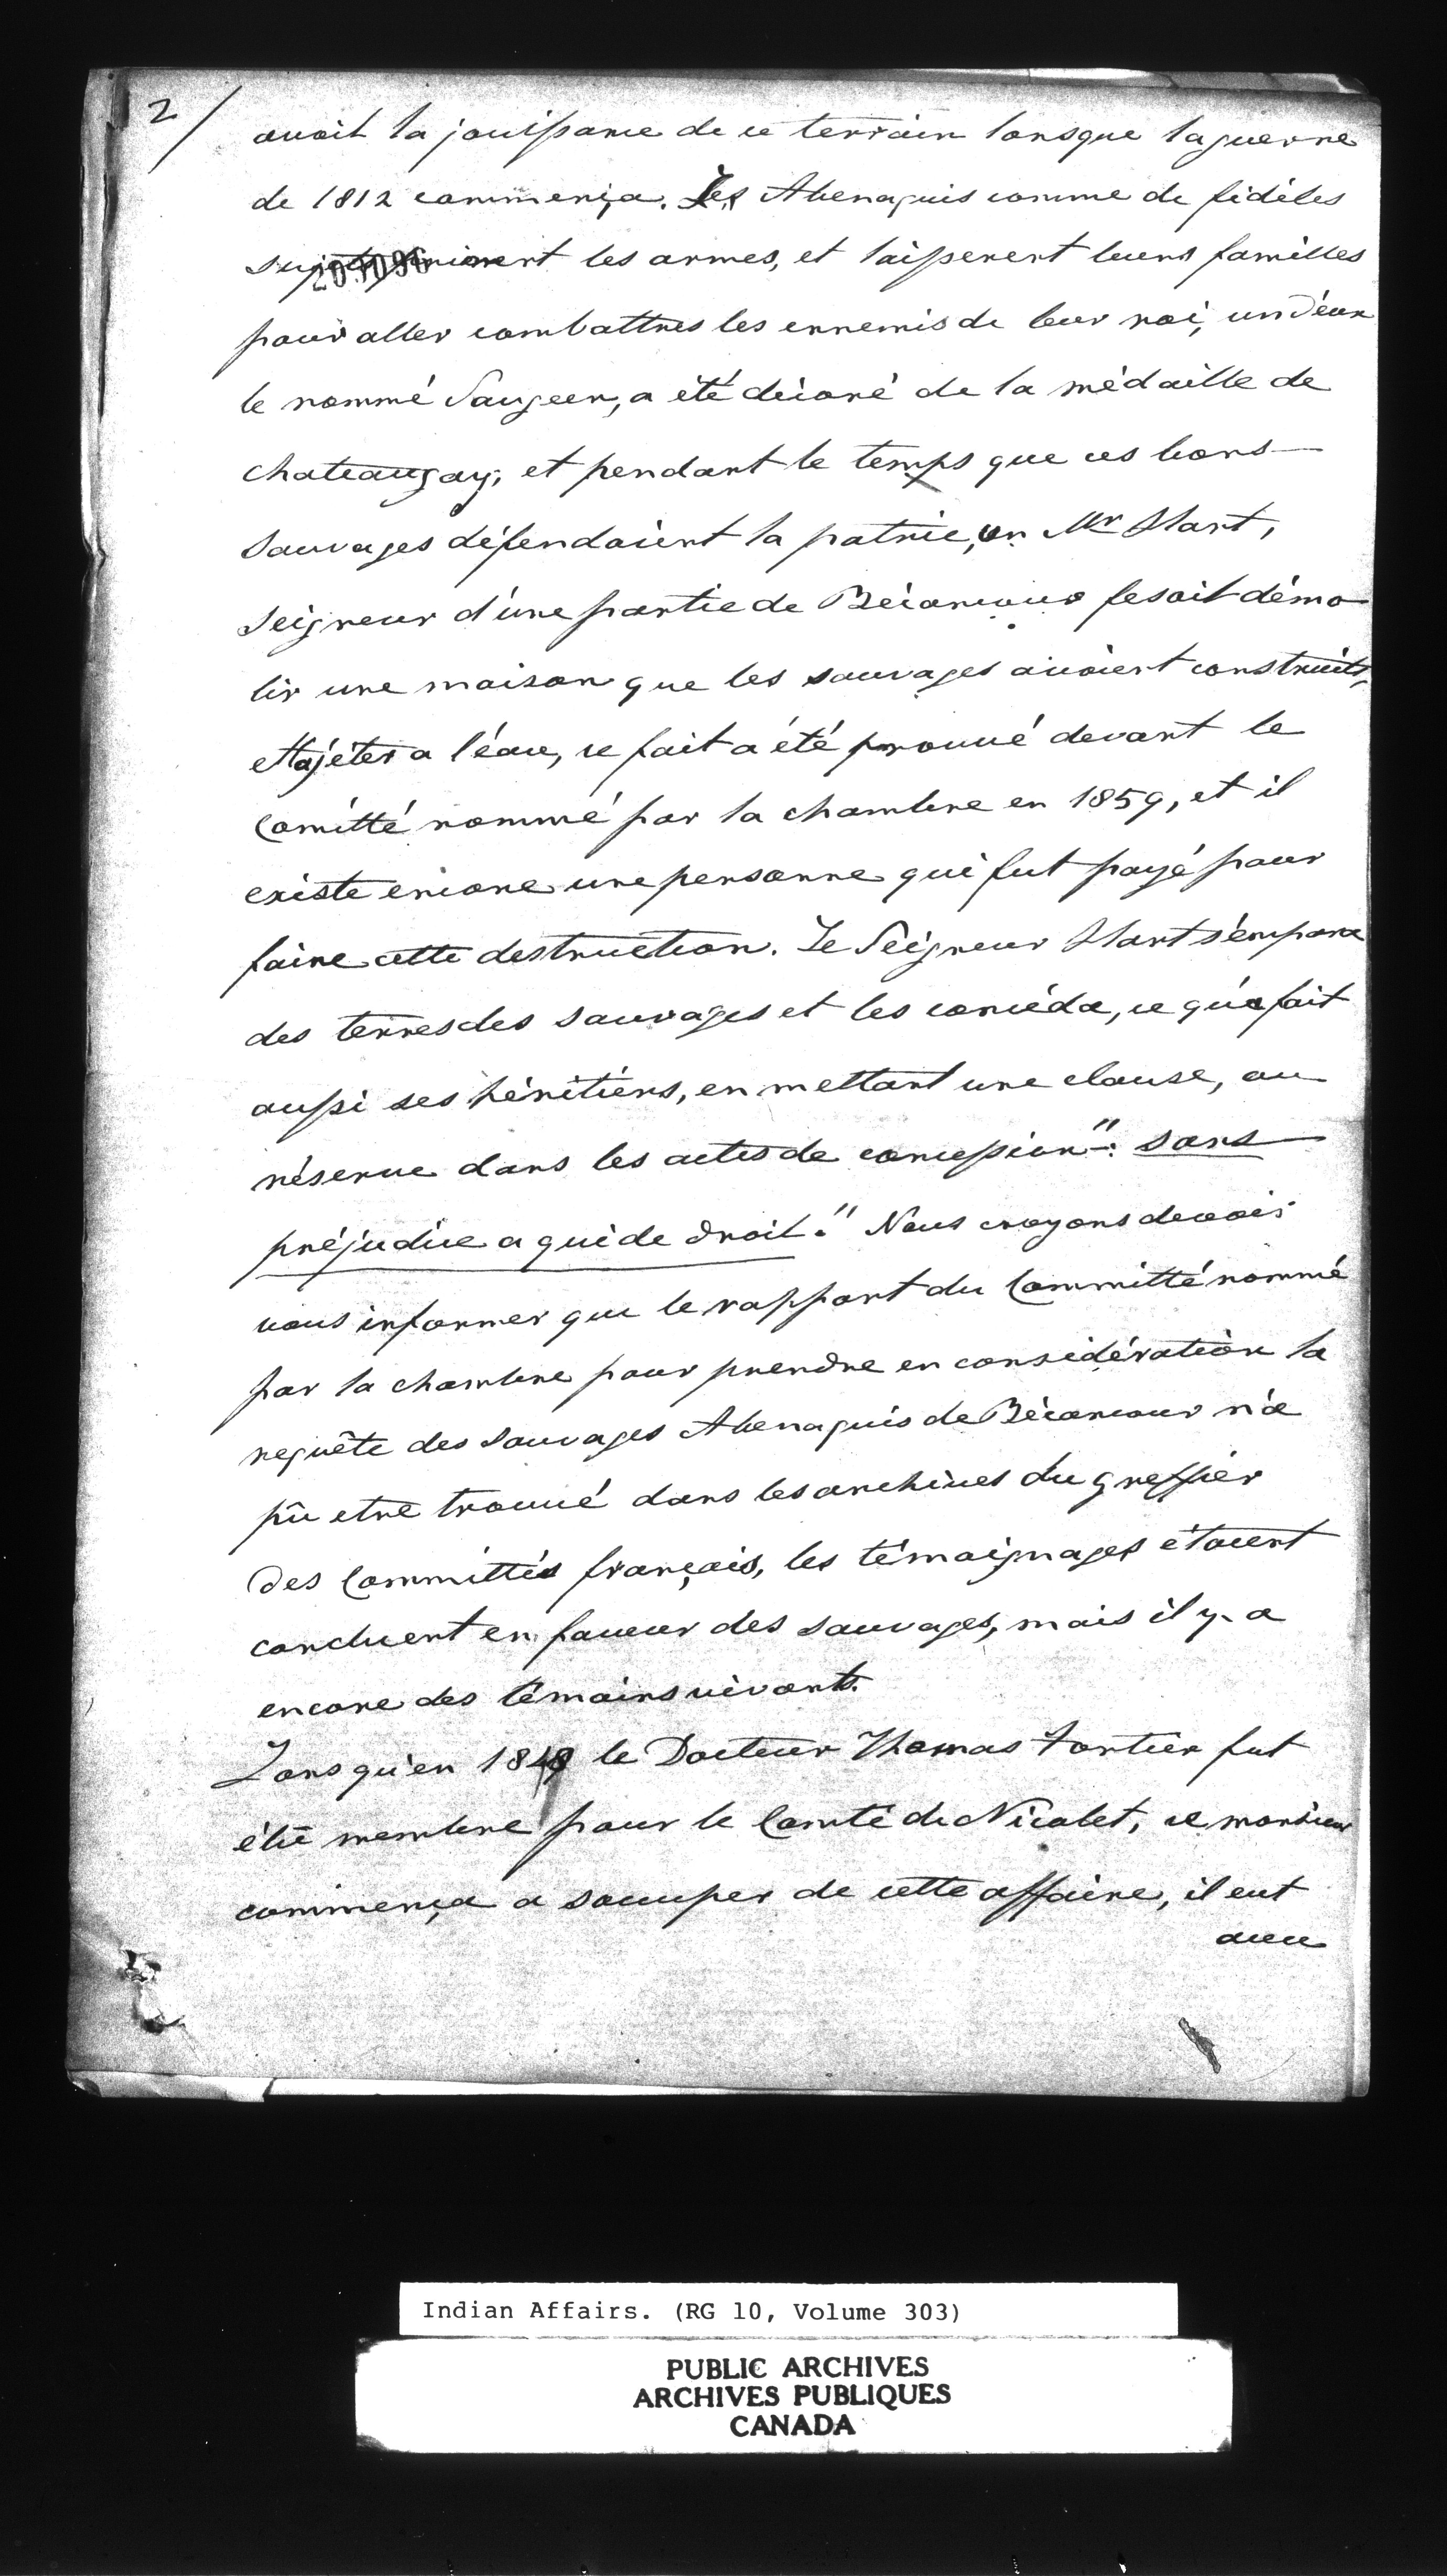 2/
avoit la jouissance de ce terrain lorsque la guerre
de 1812 commença. Les Abenaquis comme de fidéles
sujets prirent les armes, et laisserent leurs familles
pour aller combattres les ennemis de leur roi, un d'éux
le nommé Saugeen, a été décoré de la médaille de
chateaugay, et pendant le temps que ces bons
sauvages défendoient la patrie, un Mr Hart,
Seigneur d'une partie de Bécancour fesoit démo
lir une maison que les sauvages avoient construits,
et la jéter a l'éau, ce fait a été prouvé devant le
Comitté nommé par la chambre en 1859, et il
existe encore une personne qui fut payé pour
faire cette destruction. Le Seigneur Hart s'empara
des terres des sauvages et les concéda, ce qu'a fait
aussi ses héritiers, en mettant une clause, ou
réserve dans les actes de concession " sans
préjudice a qui de droit." Nous croyons devoir
vous informer que le rapport du Committé nommé
par la chambre pour prendre en considération la
requête des sauvages Abenaquis de Bécancour n'a
pû etre trouvé dans les archives du greffier
des Committés français, les témoignages étoient
concluent en faveur des sauvages, mais il y a
encore des témoins vivants.
Lorsqu'en le Docteur Thomas Fortier fut
élu membre pour le Comté de Nicolet, ce monsieur
commença a soccuper de cette affaire, il eut
avec
Indian Affairs. (RG 10, Volume 303)
PUBLIC ARCHIVES
ARCHIVES PUBLIQUES
CANADA